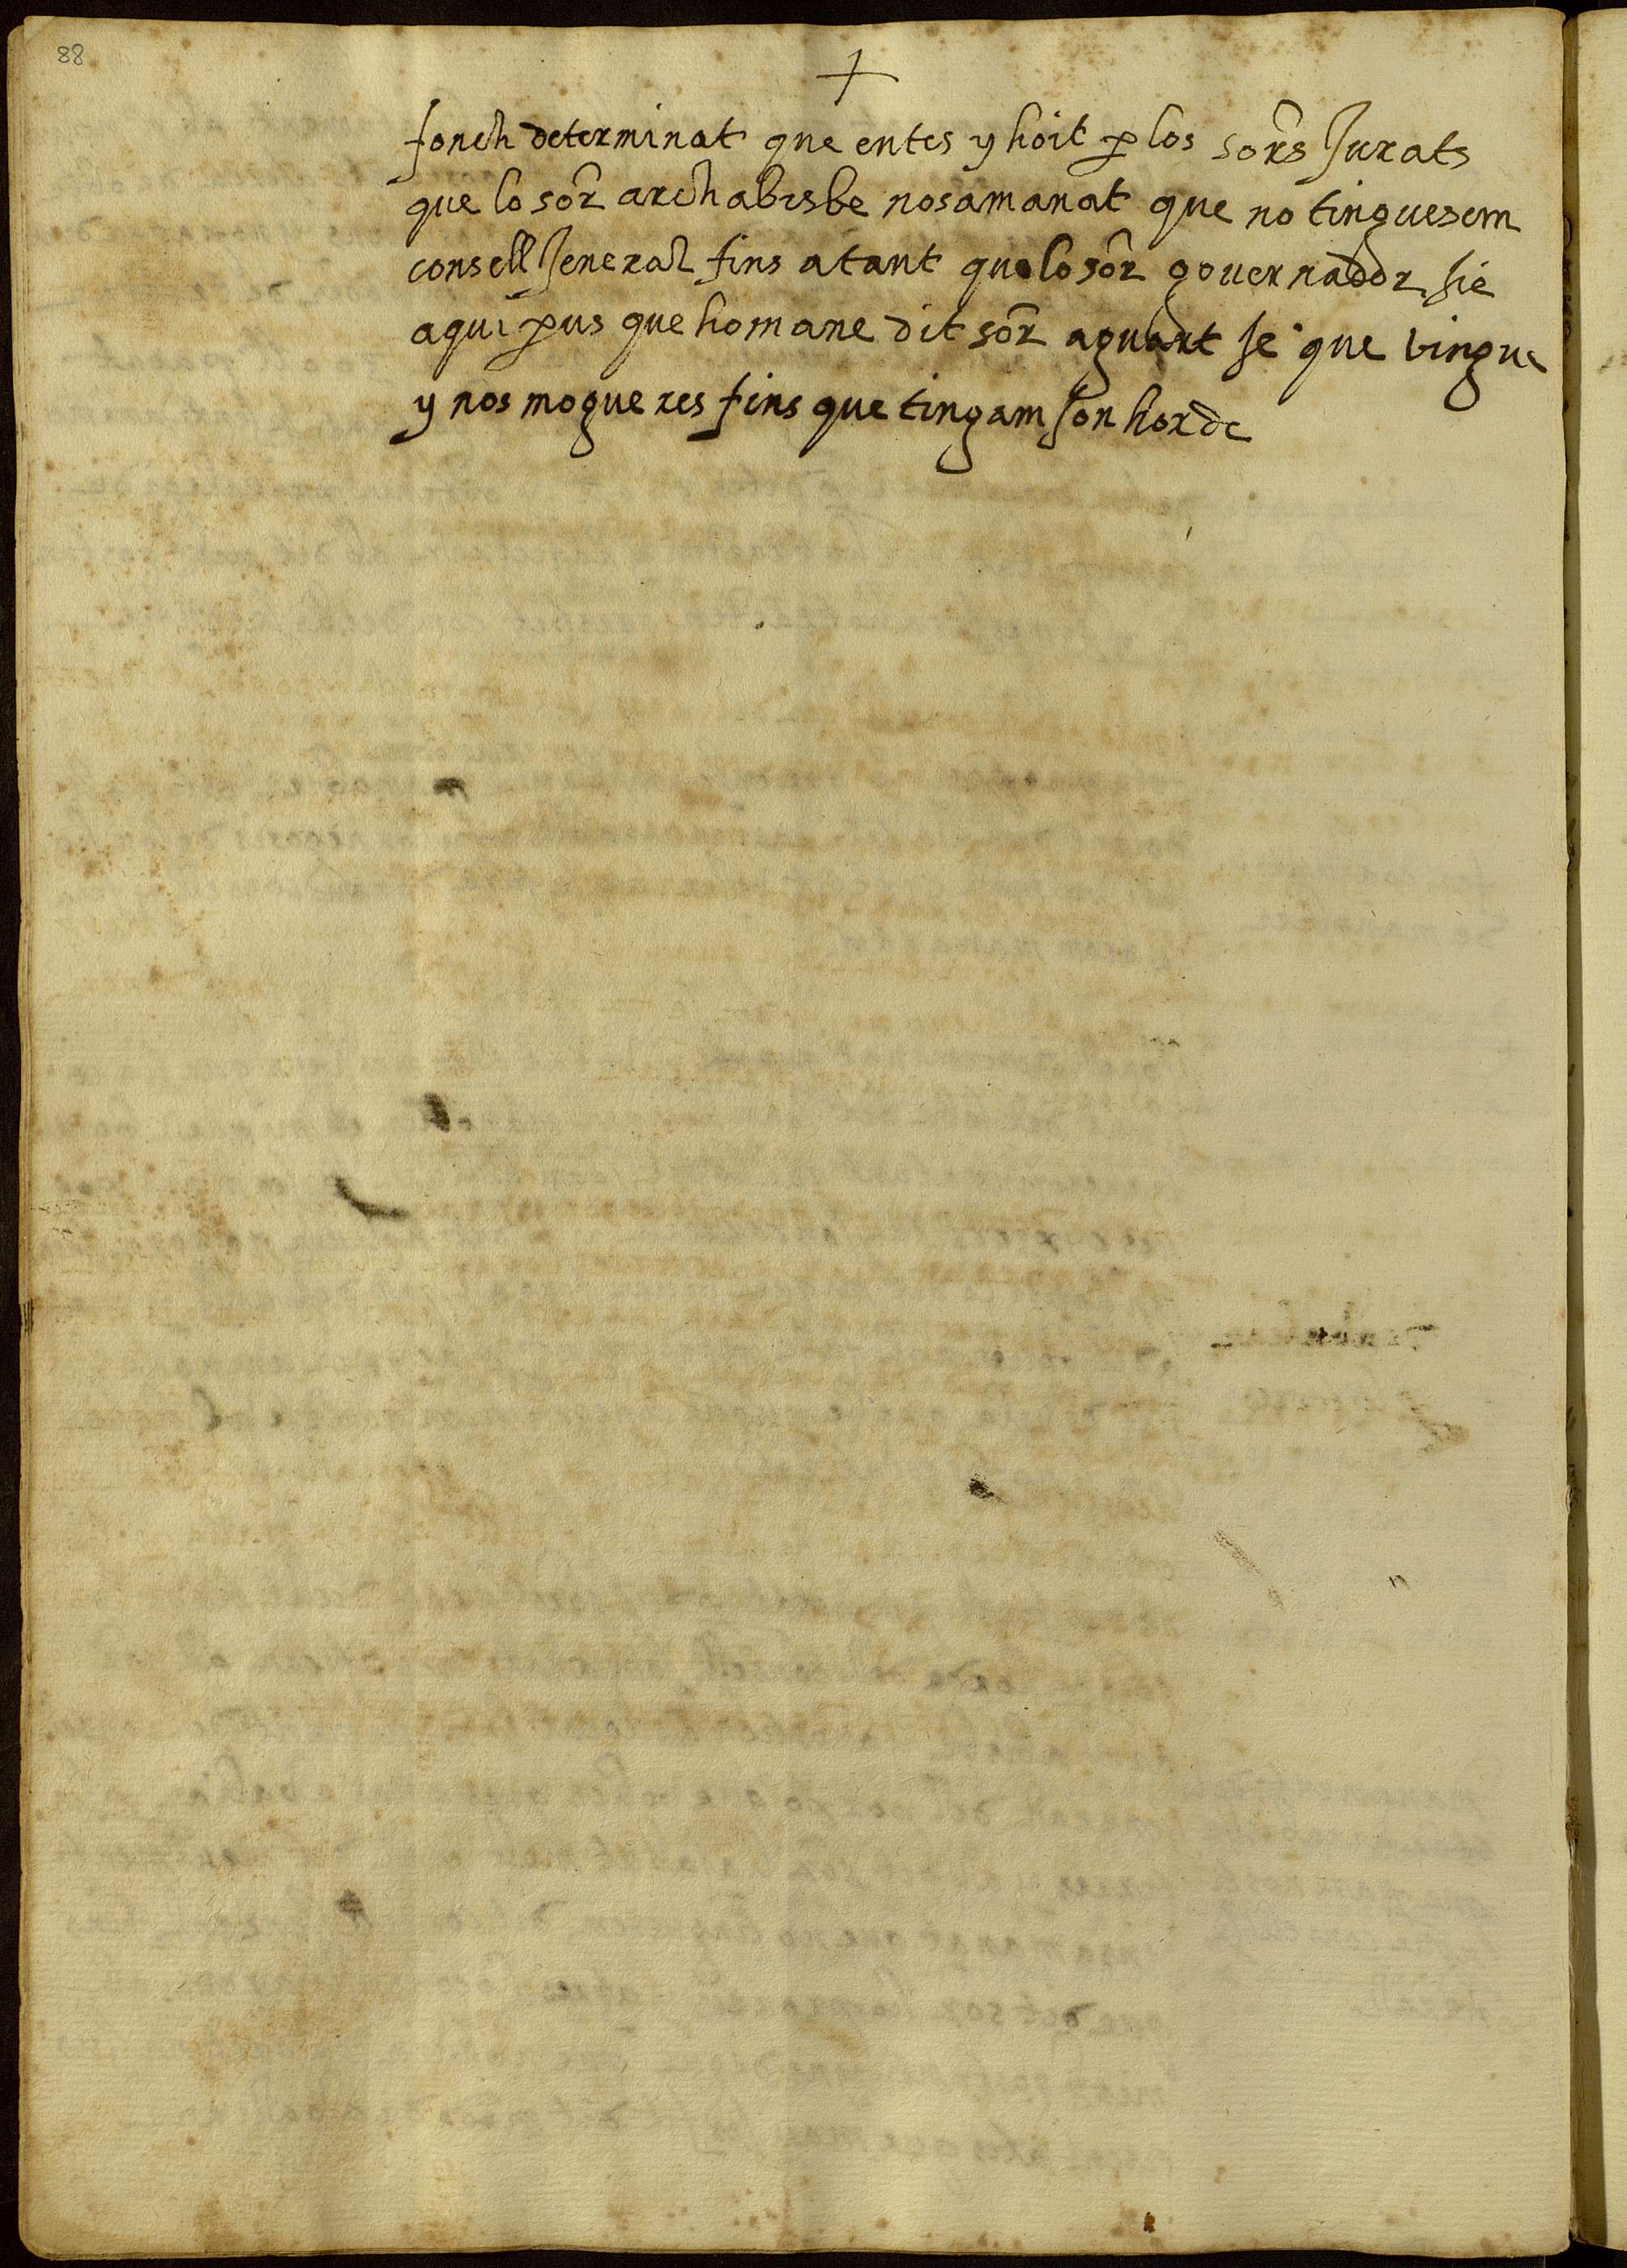 88
+
fonch determinat que entes y hoit p los sors Jurats
que lo sor archabisbe nosamanat que no tinguesem
consell Jeneral fins atant que lo sor governador sie
aqui pus que homane dit sor aguart se que vingue
y nos mogue res fins que tingam son horde